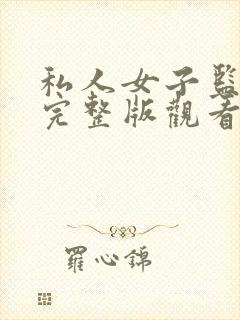 私人女子監
完整版觀看
羅心錦